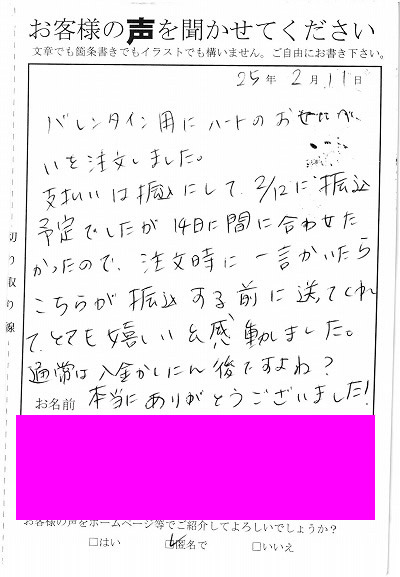 お客様の声を聞かせてください
文章でも箇条書きでもイラストでも構いません。ご自由にお書き下さい。
25年 2月 11日
バレンタイン用にハートのおせんべ
いを注文しました。
支払いは振込にして、2/12に振込
予定でしたが14日に間に合わせた
かったので、注文時に一言かいたら
こちらが振込する前に送ってくれ
て、とても嬉しい&感動しました。
通常は入金かくにん後ですよね?
お名前 本当にありがとうございました!
お客様の声をホームページ等でご紹介してよろしいでしょうか?
□はい □匿名で □いいえ
切り取り線